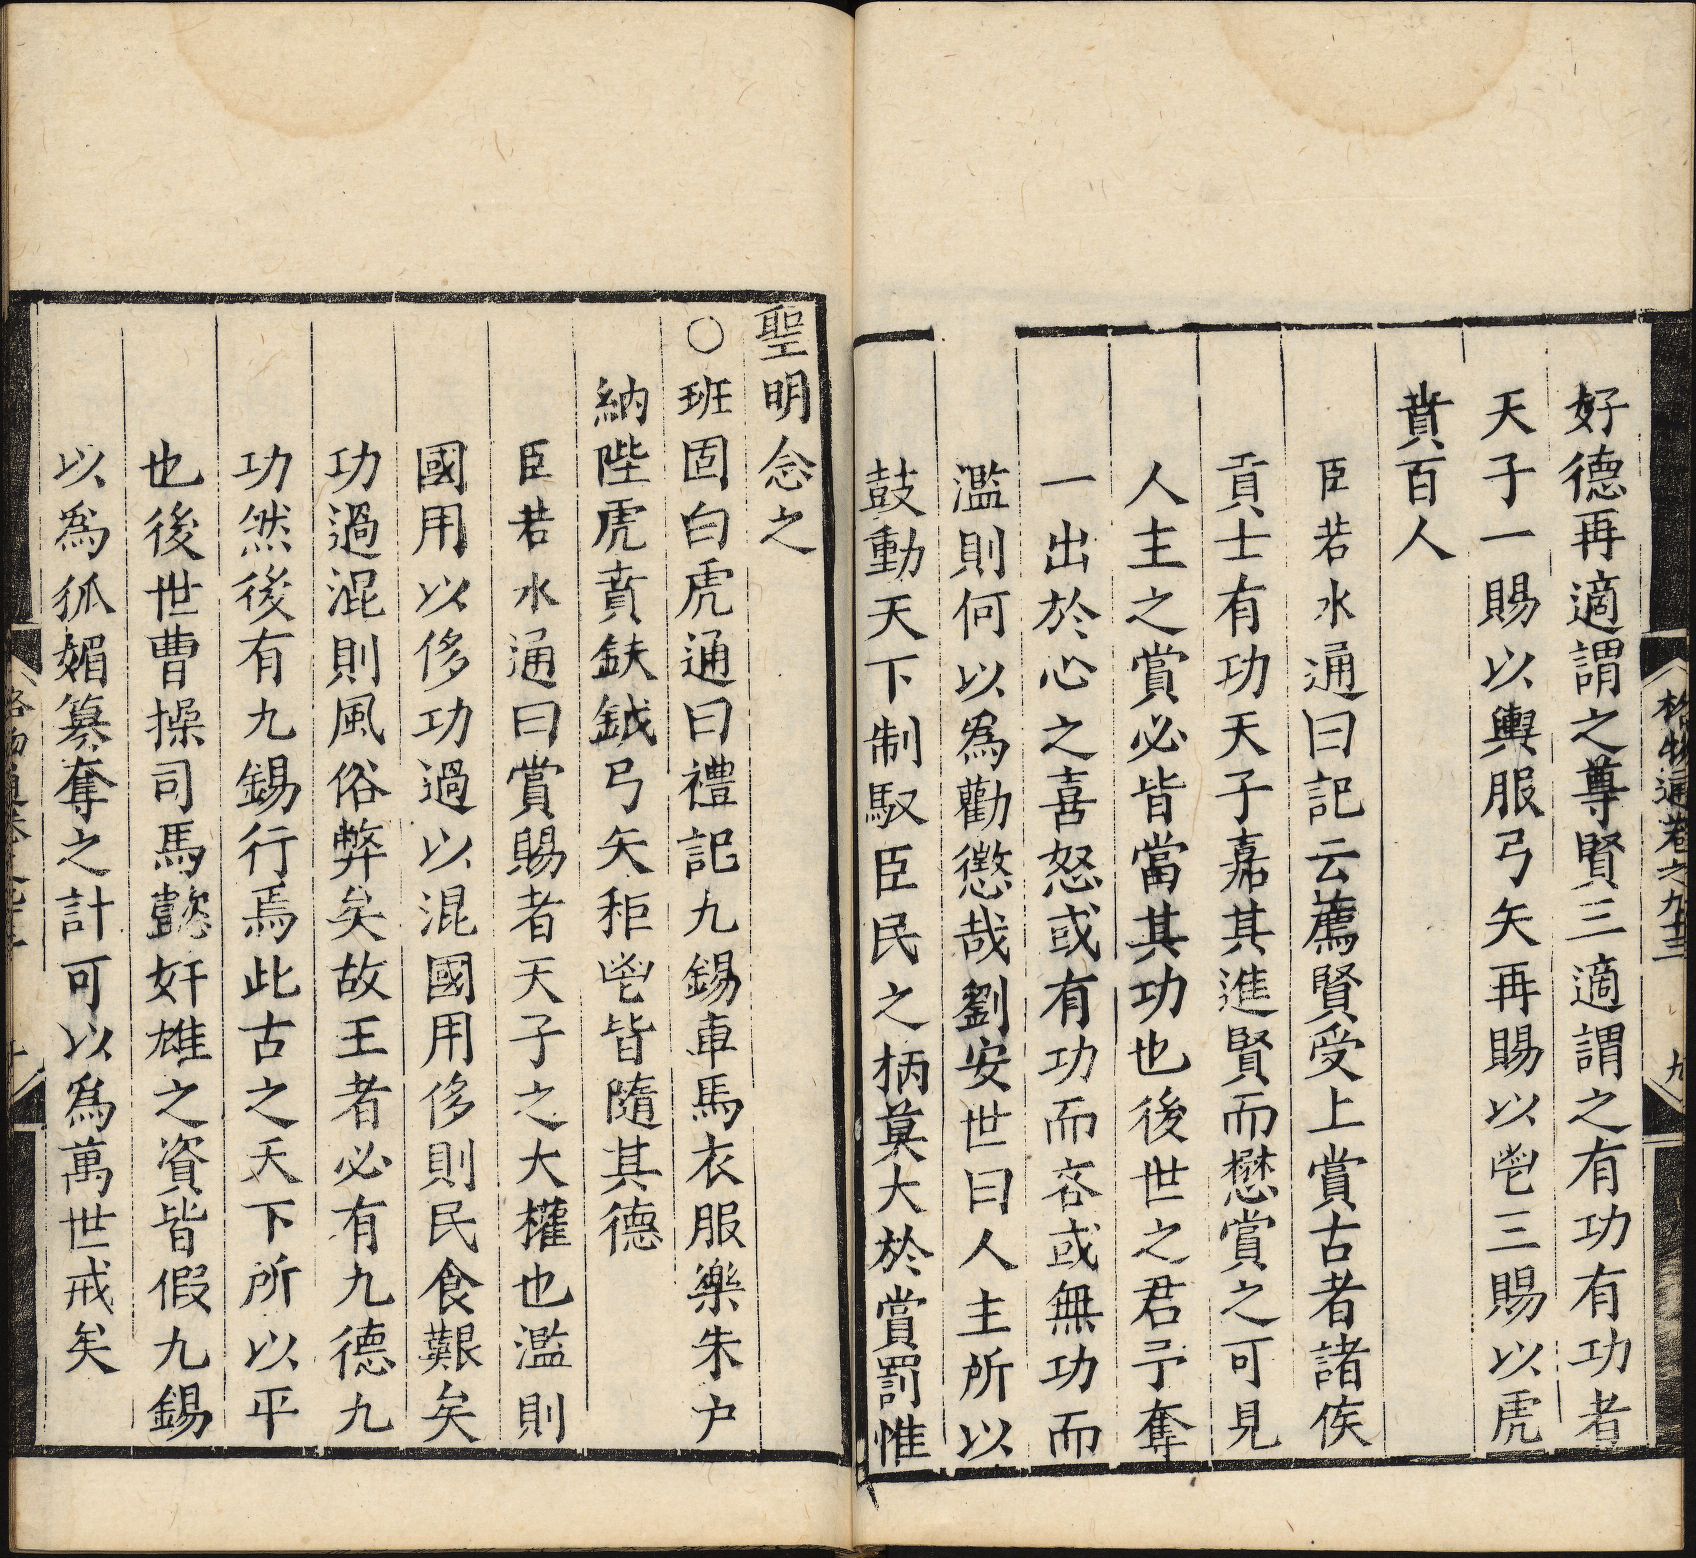 格物通卷之九十三
九
好德再適謂之尊賢三適謂之有功有功者
天子一賜以輿服弓矢再賜以鬯三賜以虎
賁百人
臣若水通曰記云薦賢受上賞古者諸侯
貢士有功天子嘉其進賢而懋賞之可見
人主之賞必皆當其功也後世之君予奪
一出於心之喜怒或有功而吝或無功而
濫則何以為勸懲哉劉安世曰人主所以
鼓動天下制馭臣民之柄莫大於賞罰惟
聖明念之
○班固白虎通曰禮記九錫車馬衣服樂朱户
納陛虎賁鈇鉞弓矢秬鬯皆隨其德
臣若水通曰賞賜者天子之大權也濫則
國用以侈功過以混國用侈則民食艱矣
功過混則風俗弊矣故王者必有九德九
功然後有九錫行焉此古之天下所以平
也後世曹操司馬懿奸雄之資皆假九錫
以為狐媚簒奪之計可以為萬世戒矣